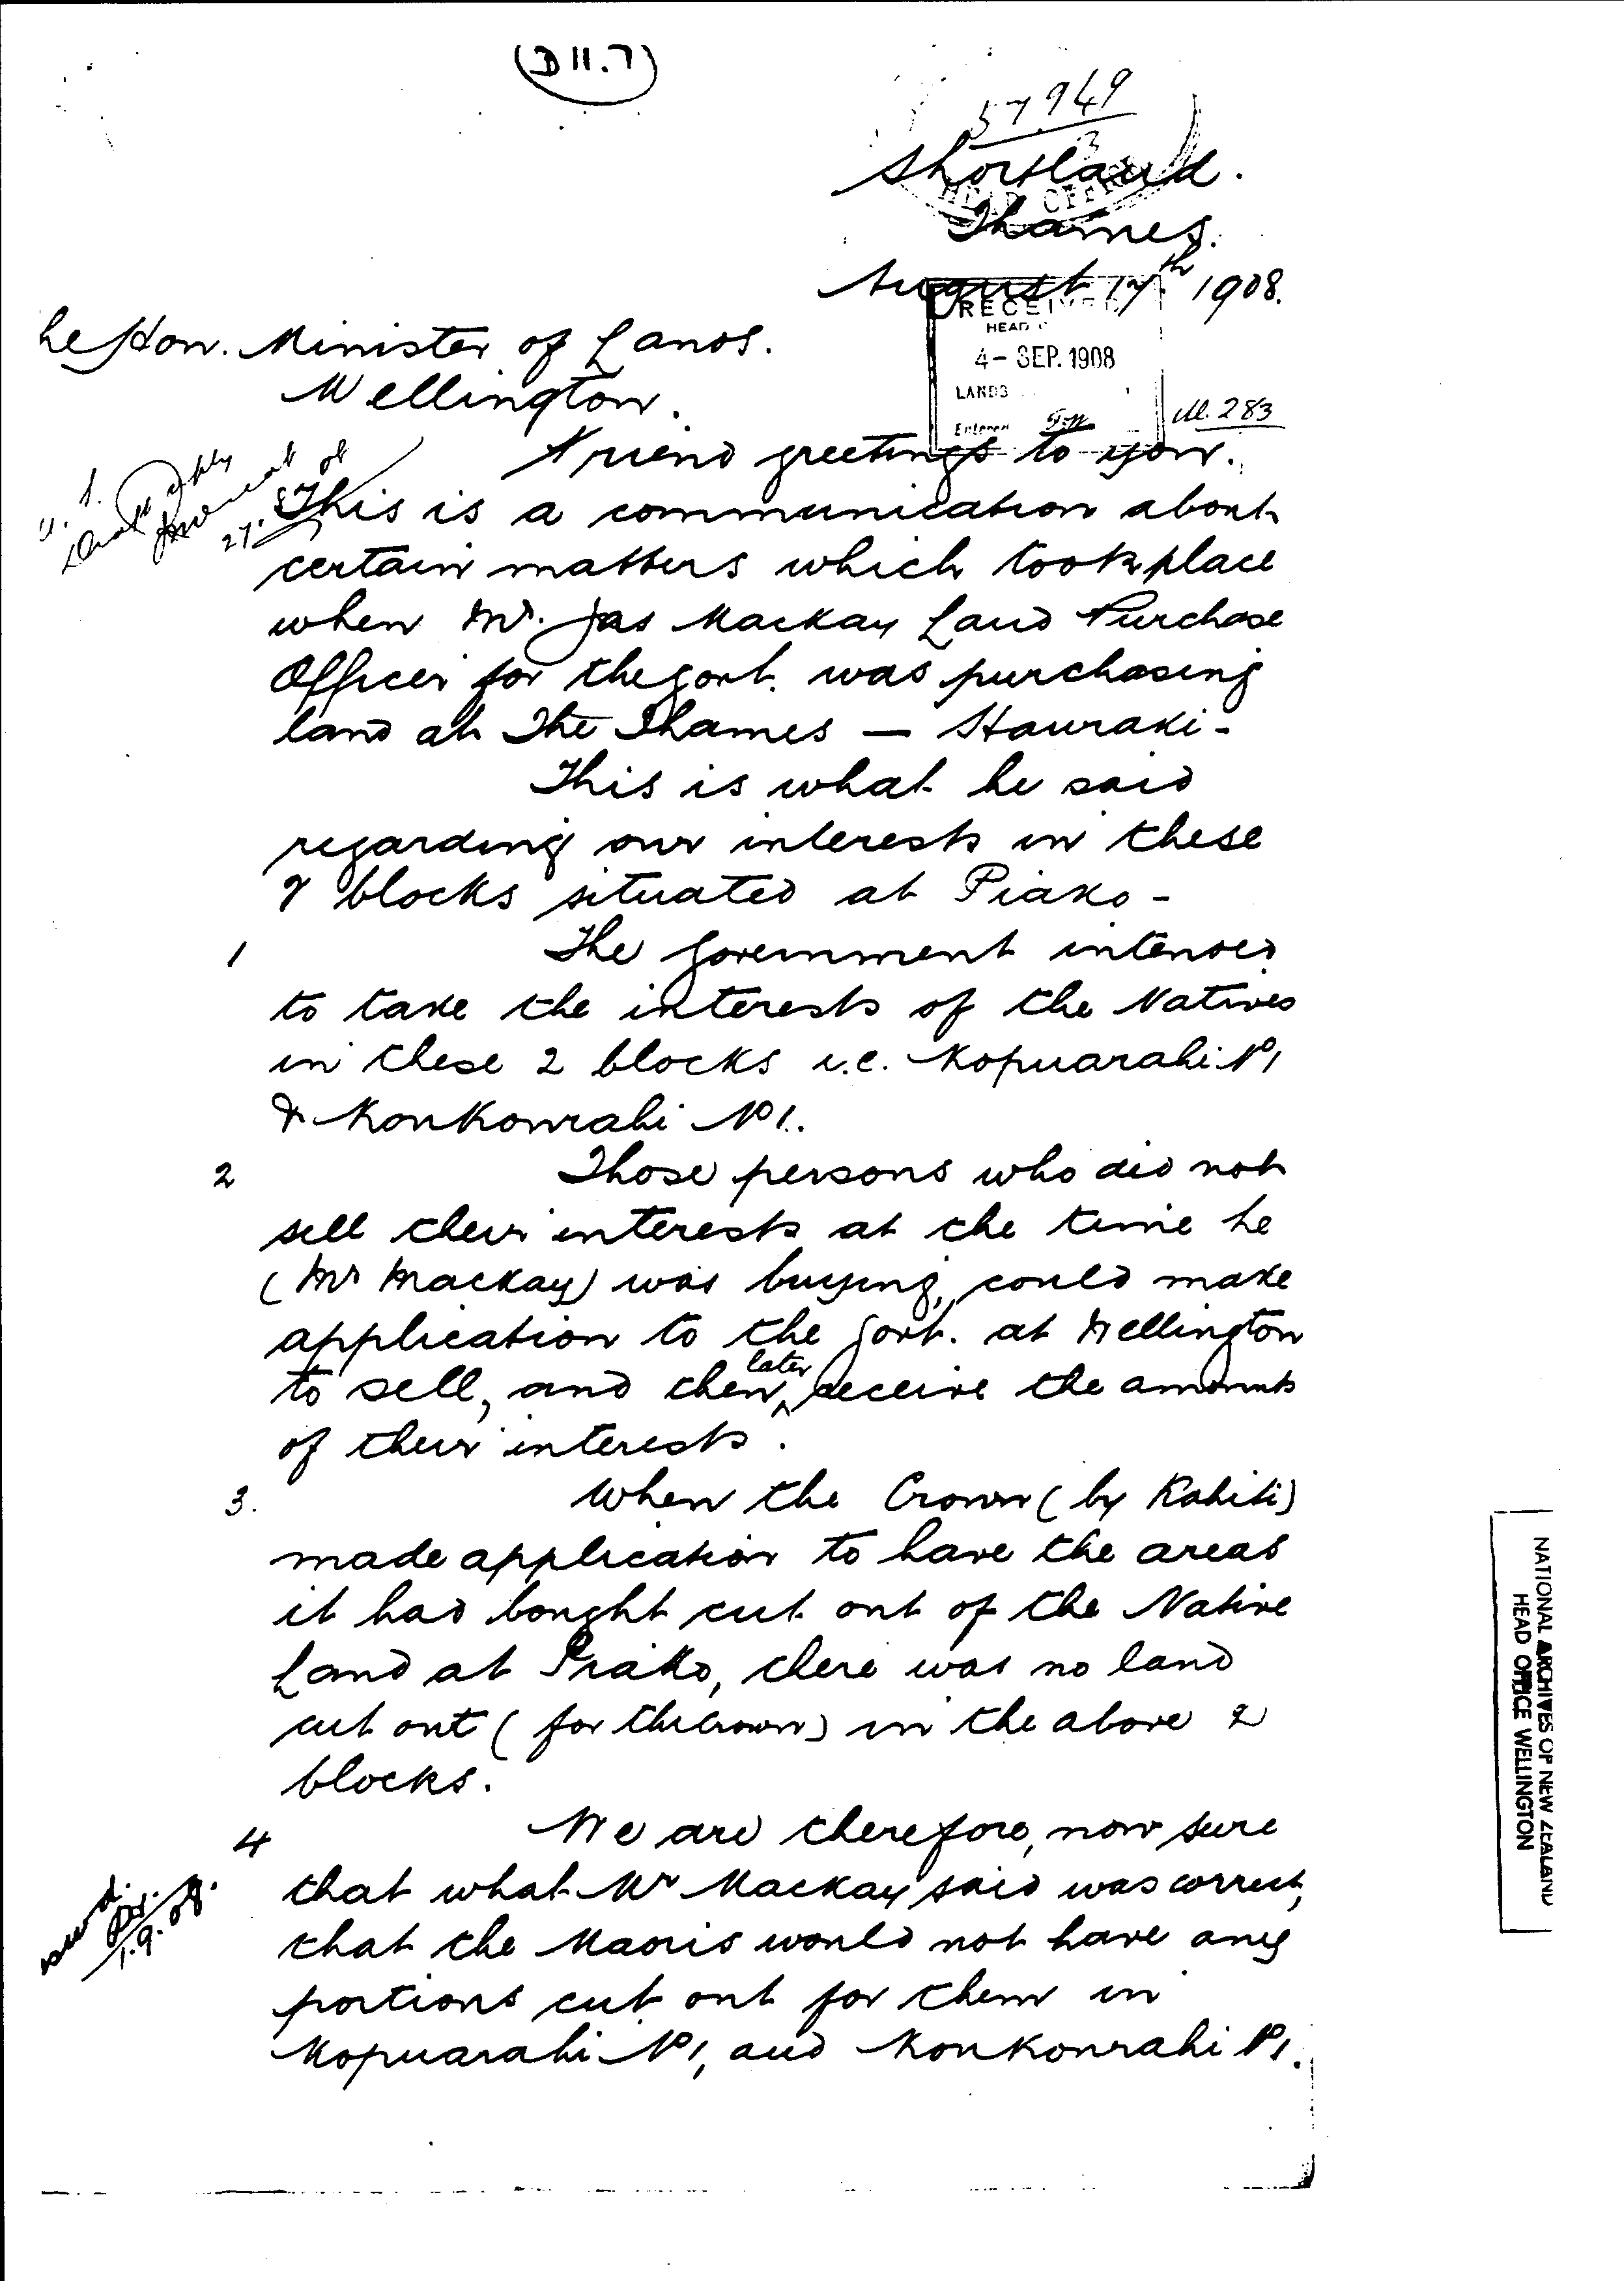 (D 11.7)
57949
Shortland.
Thames.
August 17th 1908.
RECEIVED
HEAD
4 - SEP. 1908
LANDS
Entered
M. 283
he Hon. Minister of Lands.
Wellington.
Friend greetings to you.
This is a communication about
certain matters which took place
when Mr. Jas Mackay Land Purchase
Officer for the Govt. was purchasing
land at The Thames — Hauraki -
This is what he said
regarding our interests in these
2 blocks situated at Piako -
1 The Government intended
to take the interests of the Natives
in these 2 blocks i.e. Kopuarahi No 1
& Koukourahi No 1.
2 Those persons who did not
sell their interests at the time he
(Mr Mackay) was buying, could make
application to the Govt. at Wellington
to sell, and then later receive the amounts
of their interests.
3. When the Crown (by Rahiti)
made application to have the areas
it had bought cut out of the Native
Land at Piako, there was no land
cut out (for the Crown) in the above 2
blocks.
4 We are therefore, now sure
that what Mr Mackay said was correct,
that the Maoris would not have any
portions cut out for them in
Kopuarahi No 1, and Koukourahi No 1.
1.9.08.
NATIONAL ARCHIVES OF NEW ZEALAND
HEAD OFFICE WELLINGTON